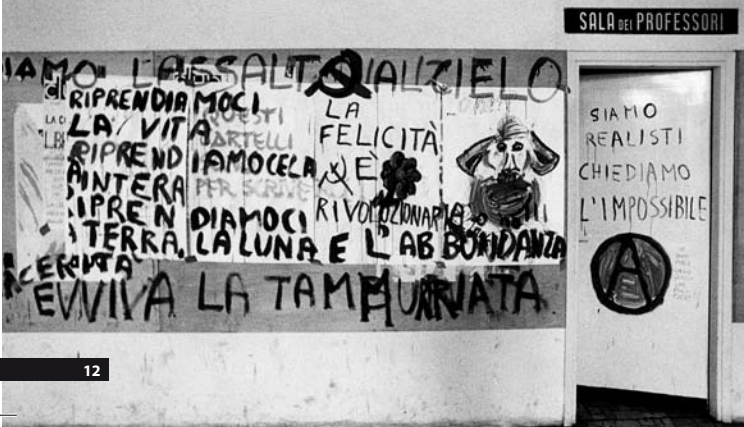 SALA DEI PROFESSORI
IAMO L'ASSALTO AL CIELO
RIPRENDIAMOCI
LA VITA
RIPRENDIAMOCELA
INTERA
RIPRENDIAMOCI
TERRA, LA LUNA E L'ABBONDANZA
QUESTI
CARTELLI
PER SCRIVE
LA
FELICITÀ
È
RIVOLUZIONARIA
EVVIVA LA TAMMURRIATA
SIAMO
REALISTI
CHIEDIAMO
L'IMPOSSIBILE
A
12